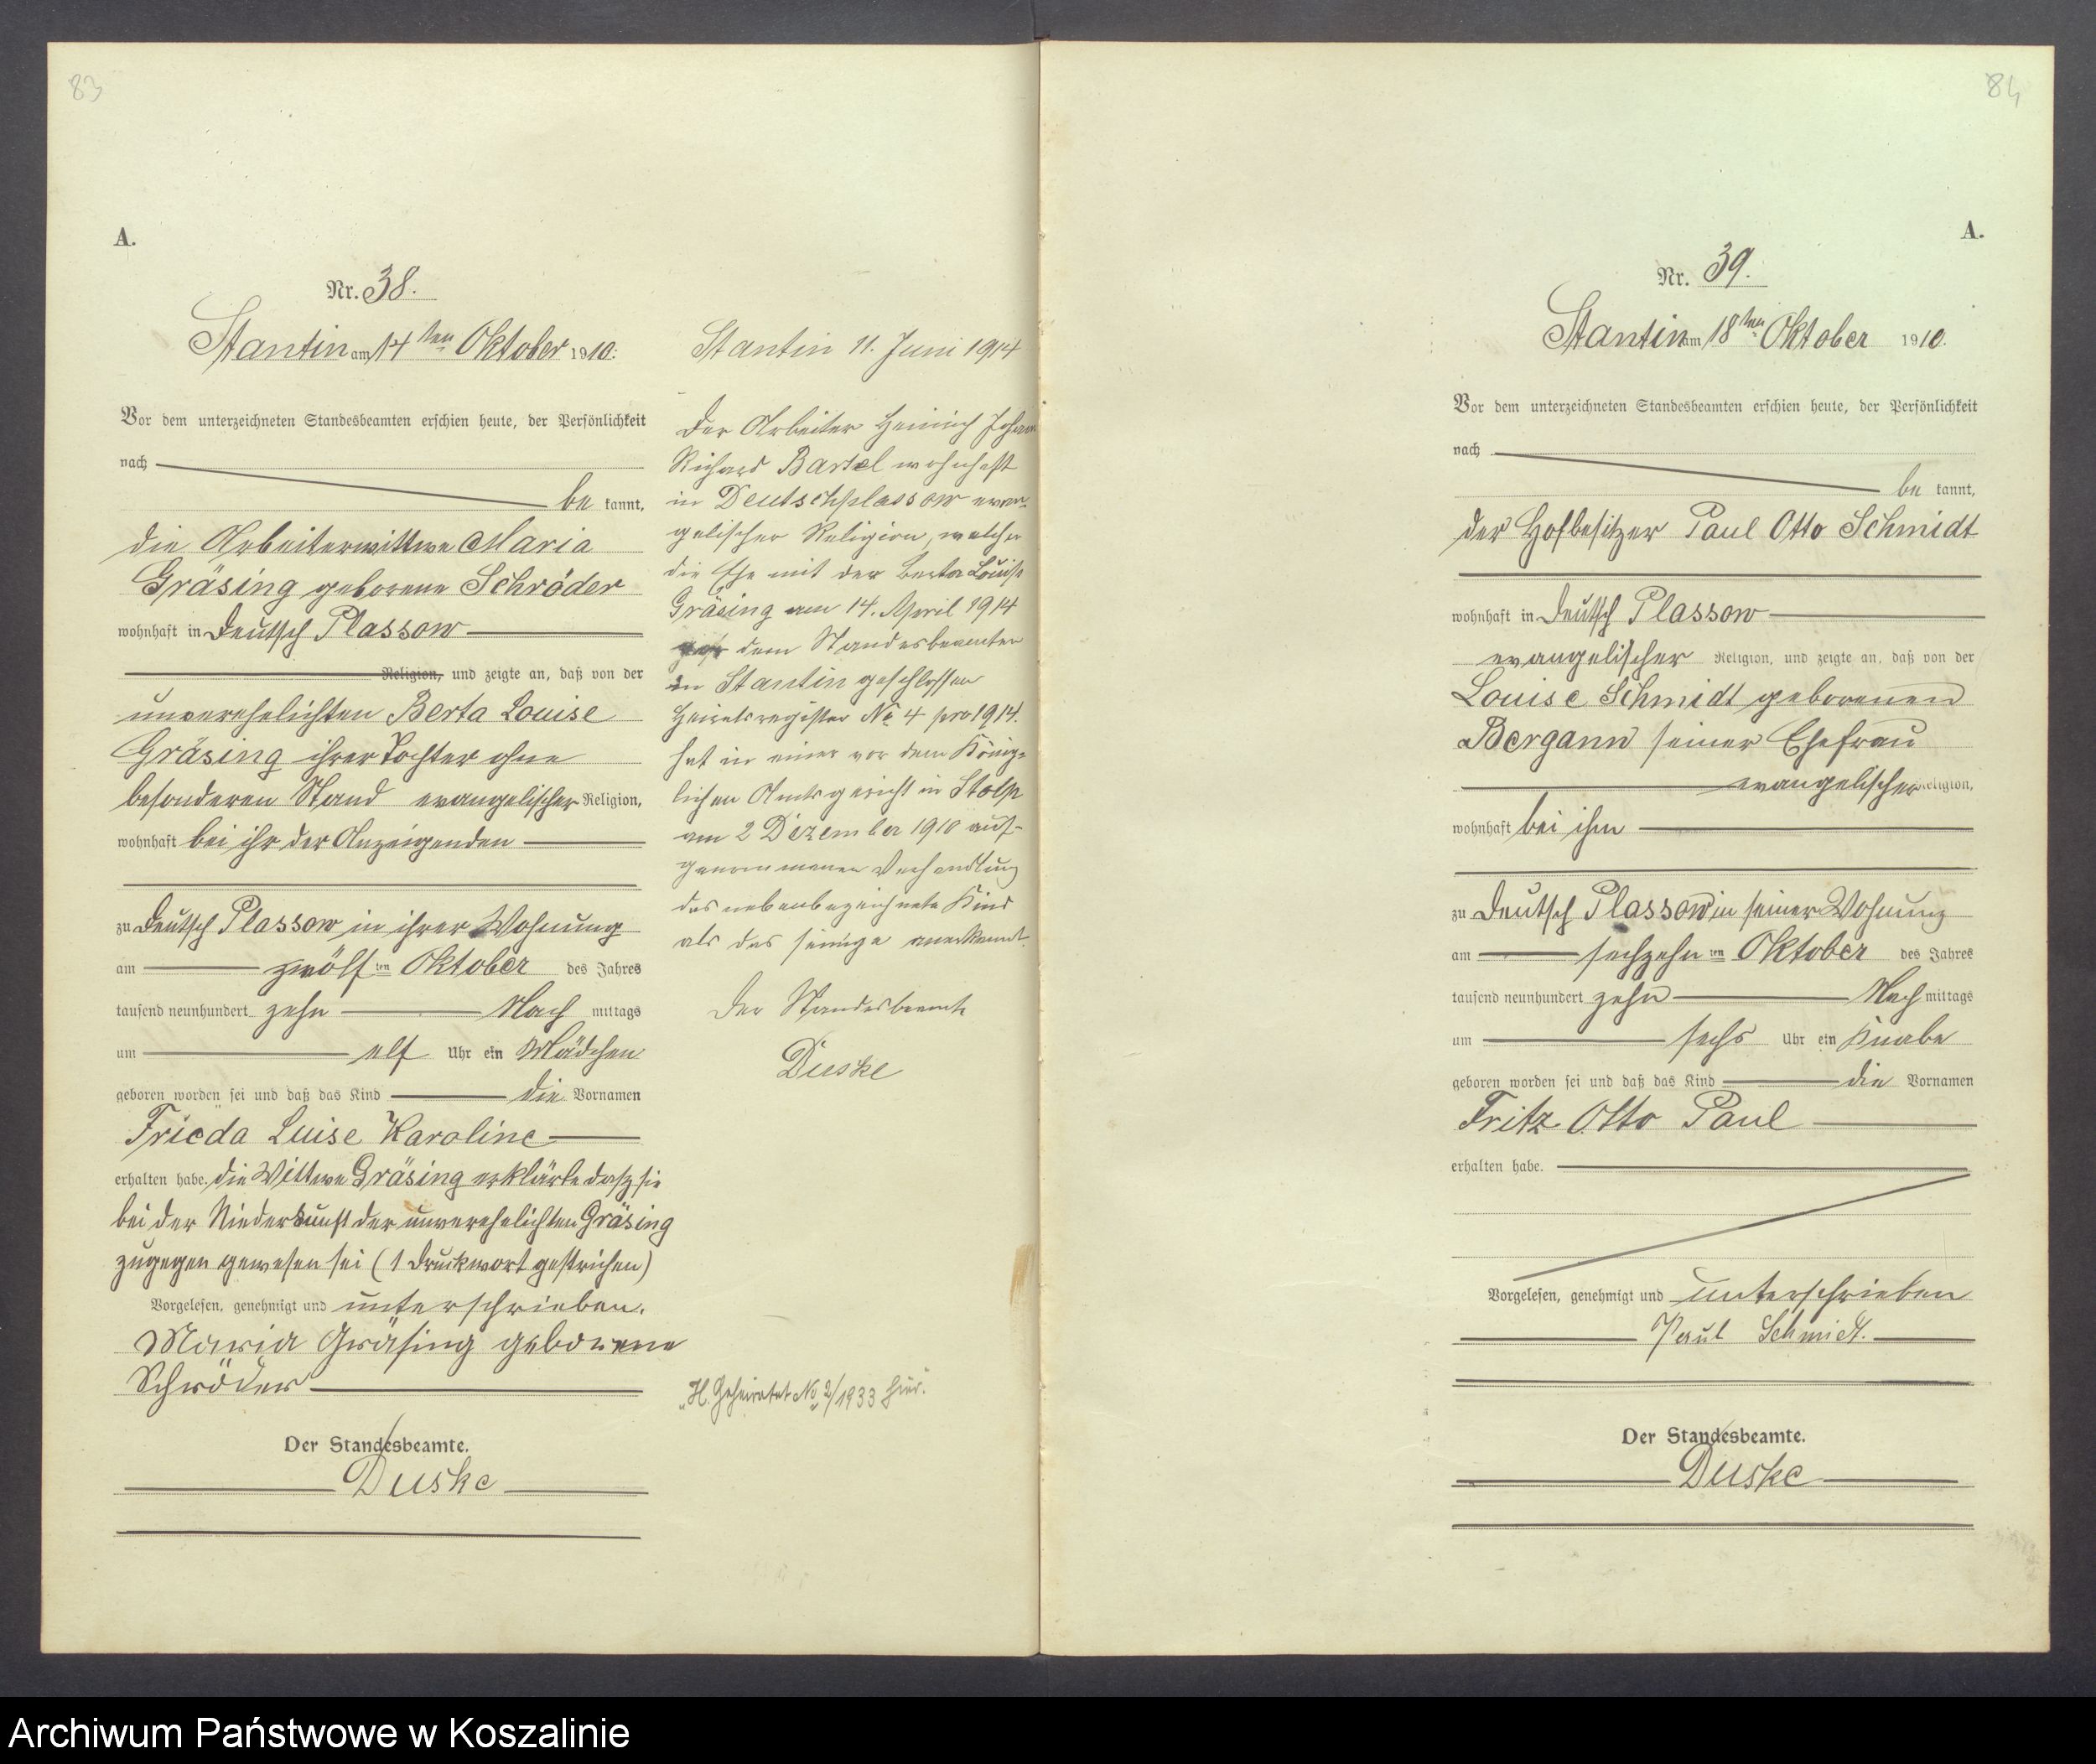 83
A.
Nr. 38.
Stantin am 14ten Oktober 1910.
Vor dem unterzeichneten Standesbeamten erschien heute, der Persönlichkeit
nach
be kannt,
die Arbeiterwittwe Maria
Gräsing geborene Schröder
wohnhaft in Deutsch Plassow
Religion, und zeigte an, daß von der
unverehelichten Berta Louise
Gräsing ihrer Tochter ohne
besonderen Stand evangelischer Religion,
wohnhaft bei ihr der Anzeigenden
zu Deutsch Plassow in ihrer Wohnung
am zwölften Oktober des Jahres
tausend neunhundert zehn Nach mittags
um elf Uhr ein Mädchen
geboren worden sei und daß das Kind die Vornamen
Frieda Luise Karoline
erhalten habe. Die Wittwe Gräsing erklärte dasz sie
bei der Niederkunft der unverehelichten Gräsing
zugegen gewesen sei (1 Druckwort gestrichen)
Vorgelesen, genehmigt und unterschrieben.
Maria Gräsing geborene
Schröder
Der Standesbeamte.
Duske
Stantin 11. Juni 1914
Der Arbeiter Heinrich Johann
Richard Bartel wohnhaft
in Deutschplassow evan-
gelischer Religion, welcher
die Ehe mit der Berta Louise
Gräsing am 14. April 1914
vor dem Standesbeamten
in Stantin geschlossen
Heiratsregister No 4 pro 1914.
hat in einer vor dem König-
lichen Amtsgericht in Stolp
am 2 Dezember 1910 auf-
genommenen Verhandlung
das nebenbezeichnete Kind
als das seinige anerkannt.
Der Standesbeamte
Duske
"H. Geheiratet No 2/1933 hier."
84
A.
Nr. 39.
Stantin am 18ten Oktober 1910.
Vor dem unterzeichneten Standesbeamten erschien heute, der Persönlichkeit
nach
be kannt,
der Hofbesitzer Paul Otto Schmidt
wohnhaft in Deutsch Plassow
evangelischer Religion, und zeigte an, daß von der
Louise Schmidt geborenen
Bergann seiner Ehefrau
evangelischer Religion,
wohnhaft bei ihm
zu Deutsch Plassow in seiner Wohnung
am sechzehnten Oktober des Jahres
tausend neunhundert zehn Nach mittags
um sechs Uhr ein Knabe
geboren worden sei und daß das Kind die Vornamen
Fritz Otto Paul
erhalten habe.
Vorgelesen, genehmigt und unterschrieben
Paul Schmidt.
Der Standesbeamte.
Duske
Archiwum Państwowe w Koszalinie